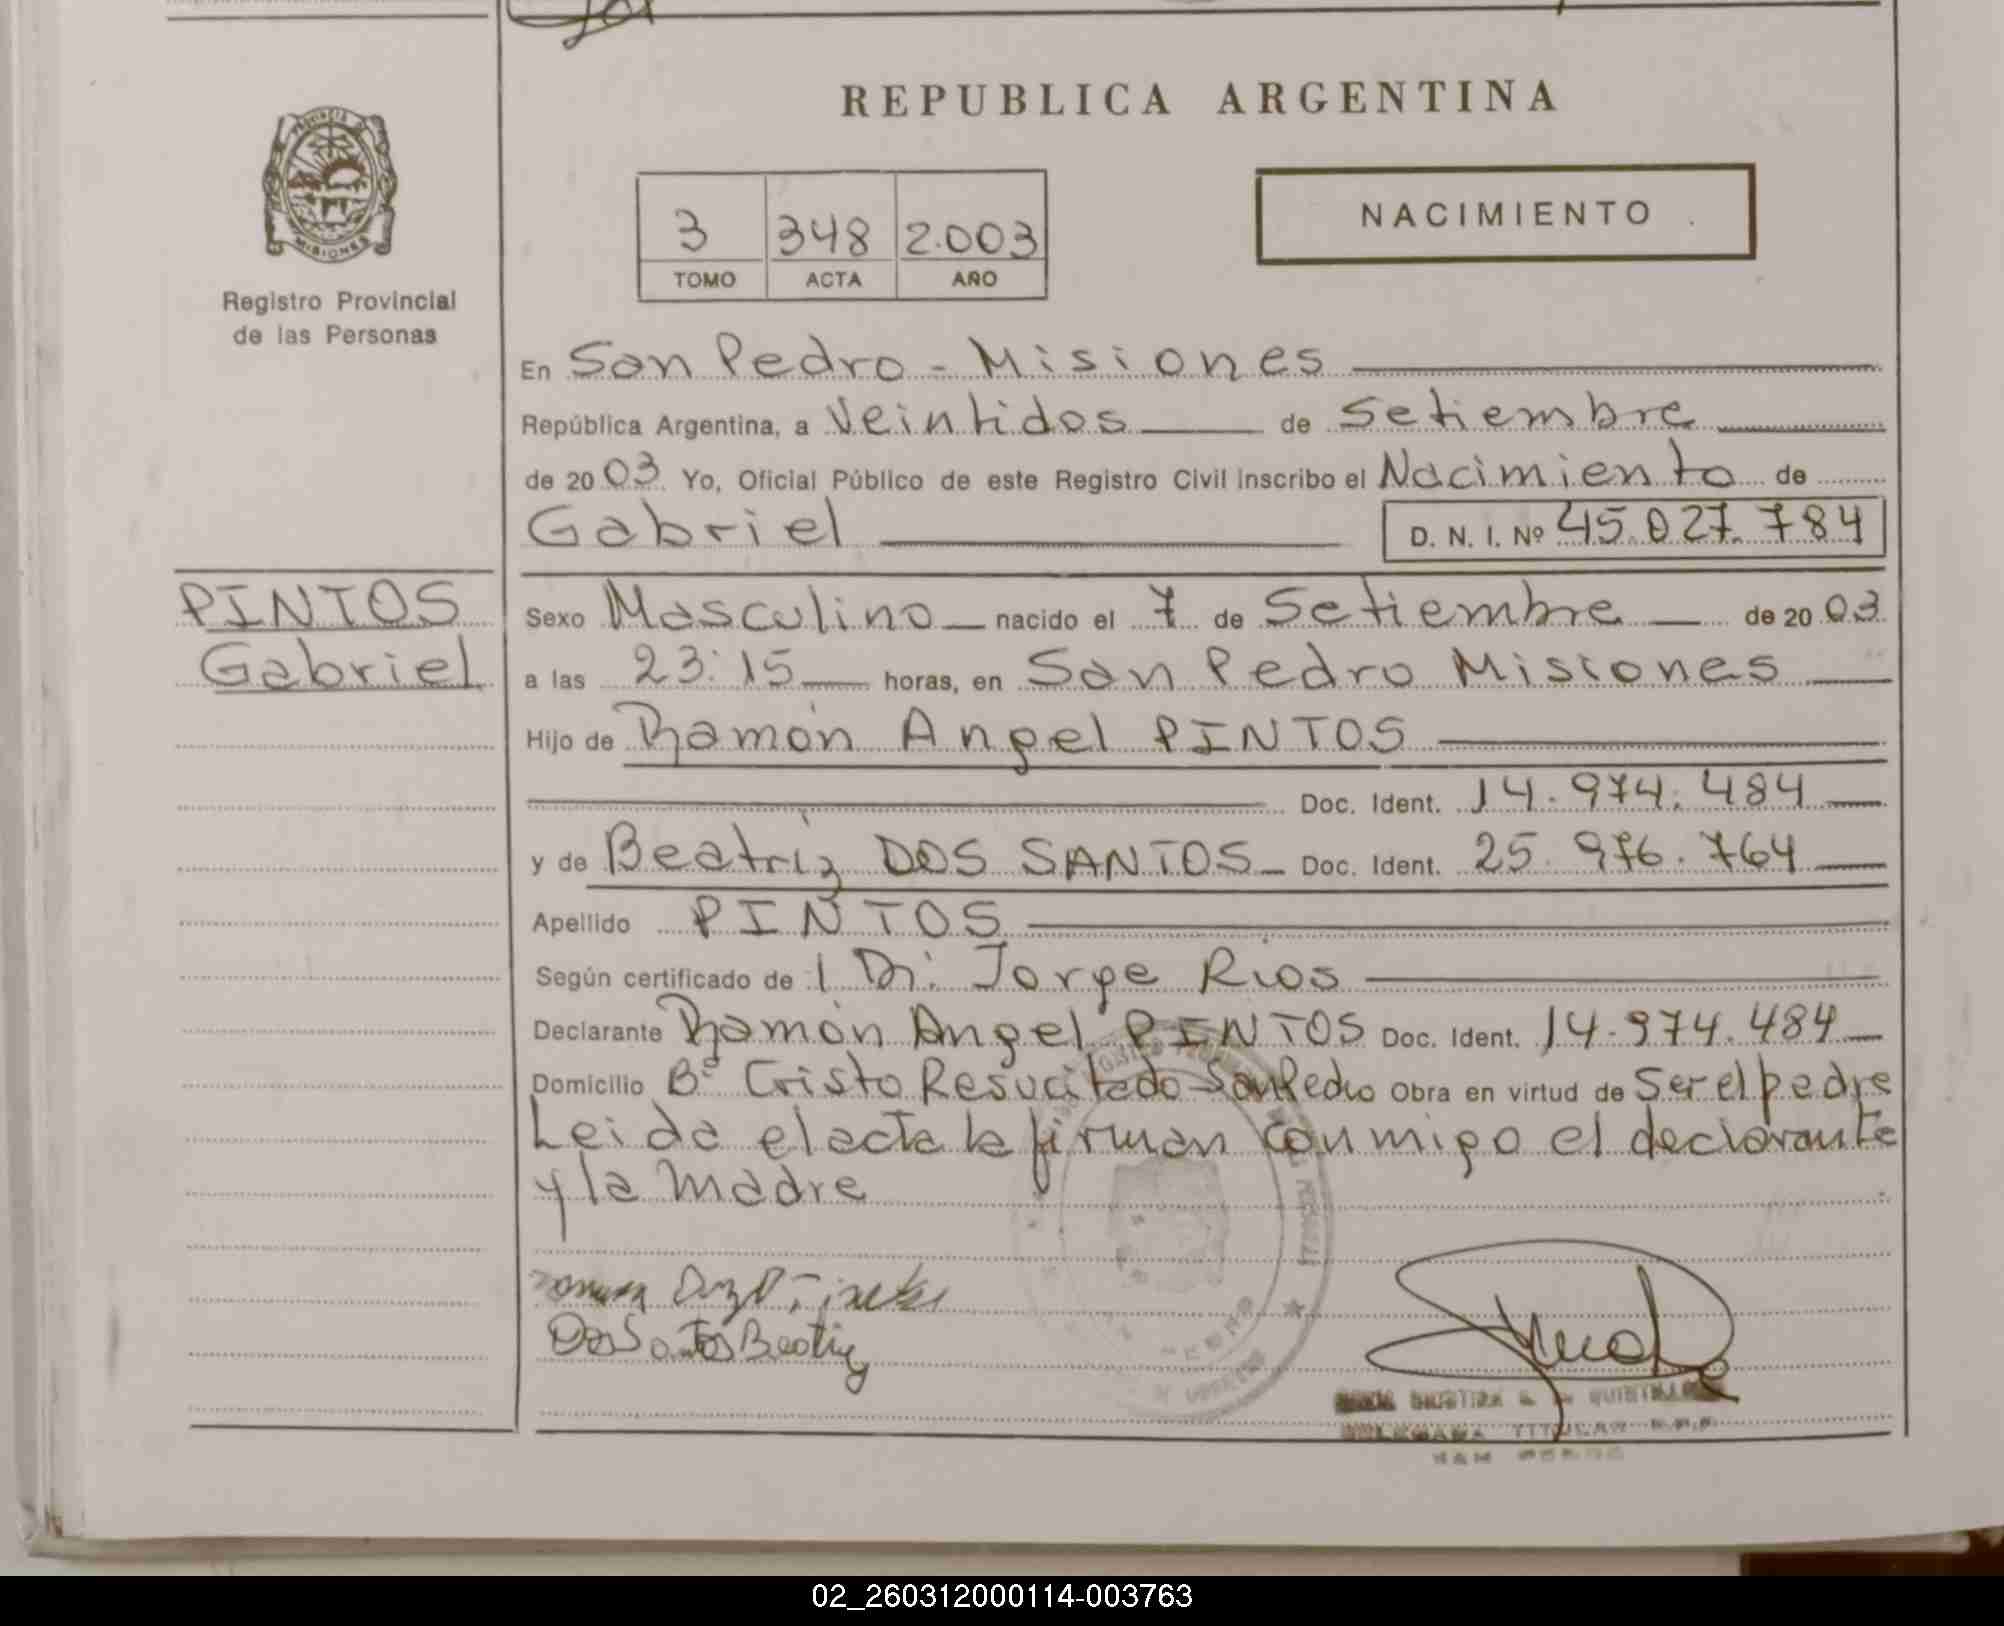 REPUBLICA ARGENTINA
PROVINCIA DE
MISIONES
Registro Provincial
de las Personas
3 348 2.003
TOMO ACTA AÑO
NACIMIENTO
En San Pedro - Misiones
República Argentina, a Veintidos de Setiembre
de 2003 Yo, Oficial Público de este Registro Civil inscribo el Nacimiento de
Gabriel D. N. I. Nº 45.027.784
PINTOS
Gabriel
Sexo Masculino nacido el 7 de Setiembre de 2003
a las 23:15 horas, en San Pedro Misiones
Hijo de Ramón Angel PINTOS
Doc. Ident. 14.974.484
y de Beatriz DOS SANTOS Doc. Ident. 25.976.764
Apellido PINTOS
Según certificado de l Dr. Jorge Rios
Declarante Ramón Angel PINTOS Doc. Ident. 14.974.484
Domicilio Bº Cristo Resucitado San Pedro Obra en virtud de Ser el padre
Leida el acta la firman conmigo el declarante
y la madre
Dos Santos Beatriz
TITULAR
SAN PEDRO
02_260312000114-003763